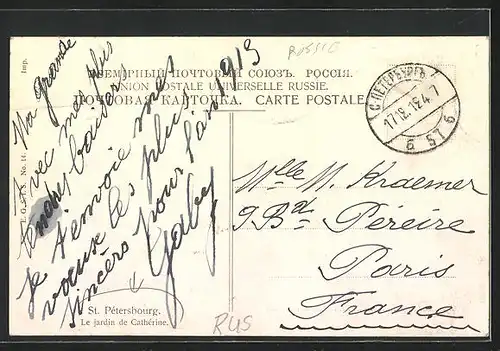 Imp.
RUSSIE
ВСЕМІРНЫЙ ПОЧТОВЫЙ СОЮЗЪ. РОССІЯ.
UNION POSTALE UNIVERSELLE RUSSIE.
ПОЧТОВАЯ КАРТОЧКА. CARTE POSTALE
С.ПЕТЕРБУРГЪ
17.12.12.4.7
6 57 6
Ma grande
Avec mes plus
tendres baisers
Je t'envoie mes
vœux les plus
sincères pour l'an 1913
Gaby
Mlle M. Kraemer
9 Bd Péreire
Paris
France
No. 14.
St. Pétersbourg.
Le jardin de Cathérine.
RUS